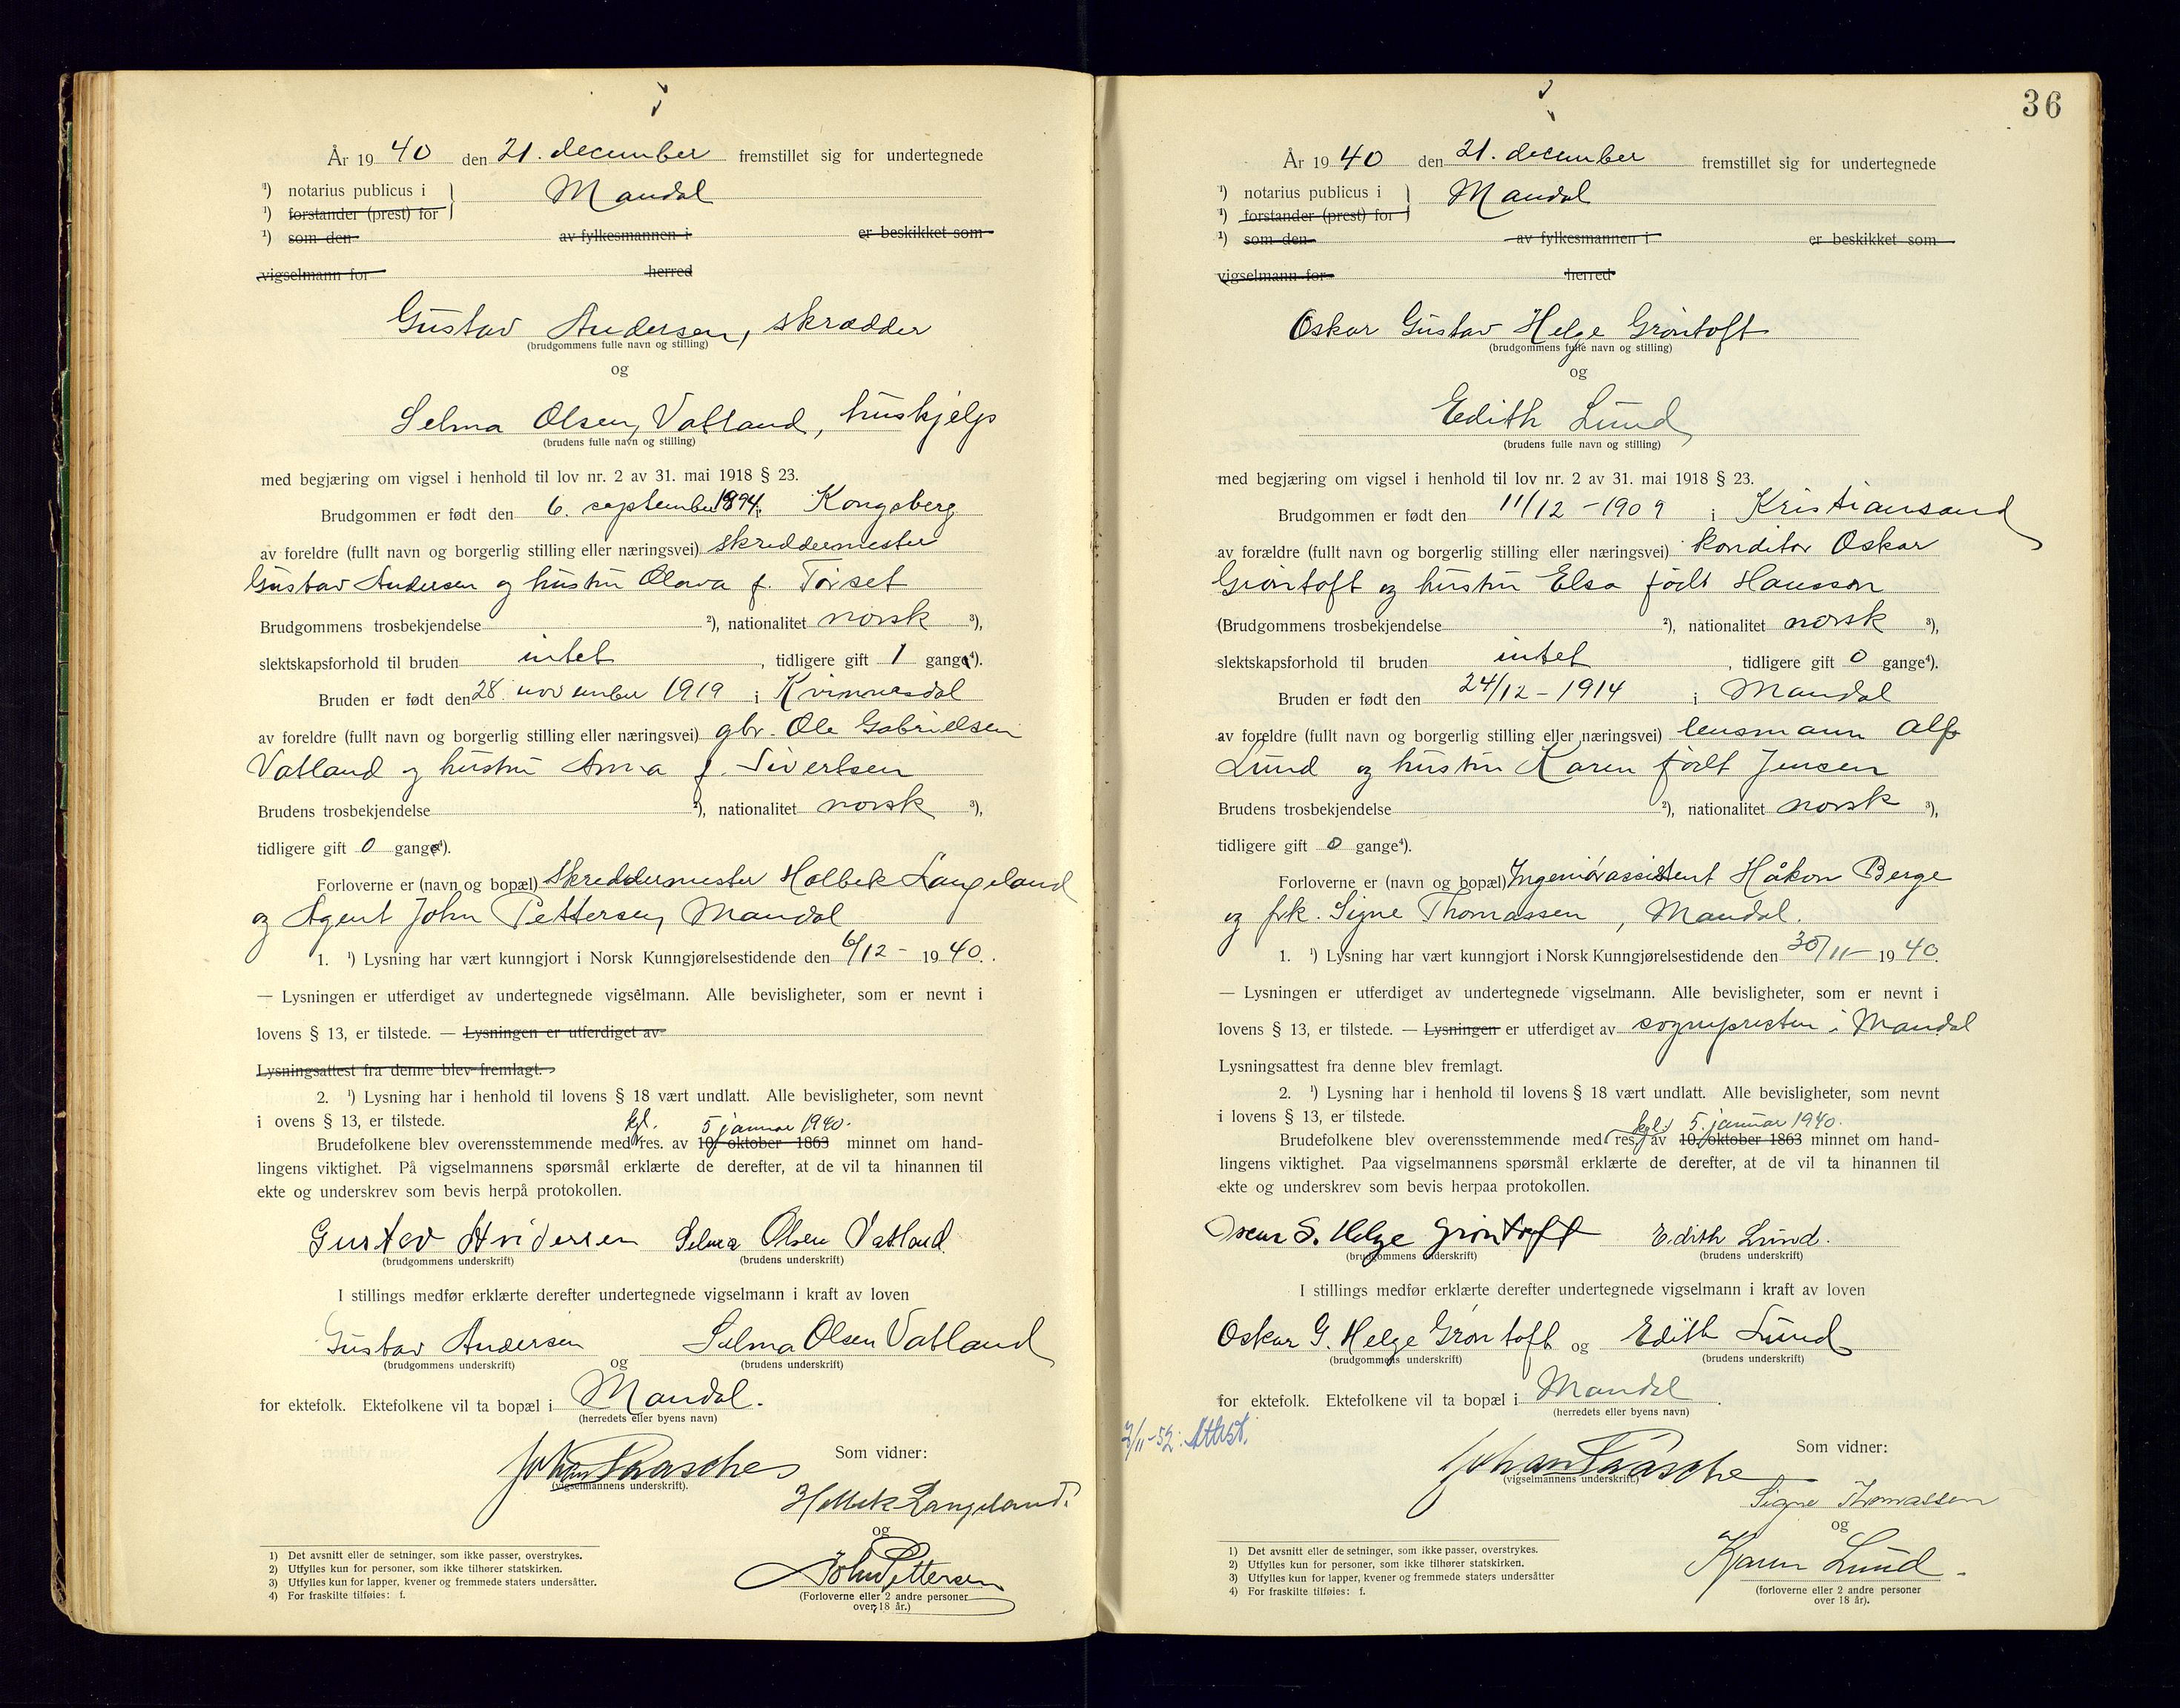 År 1940 den 21. december fremstillet sig for undertegnede
¹) notarius publicus i Mandal
¹) forstander (prest) for
¹) som den av fylkesmannen i er beskikket som
vigselmann for herred
Gustav Andersen, skrædder
(brudgommens fulle navn og stilling)
og
Selma Olsen Vatland, huskjelp
(brudens fulle navn og stilling)
med begjæring om vigsel i henhold til lov nr. 2 av 31. mai 1918 § 23.
Brudgommen er født den 6. september 1894 i Kongsberg
av foreldre (fullt navn og borgerlig stilling eller næringsvei) skreddermester
Gustav Andersen og hustru Olava f. Torset
Brudgommens trosbekjendelse ²), nationalitet norsk ³),
slektskapsforhold til bruden intet, tidligere gift 1 gang⁴).
Bruden er født den 28. november 1919 i Kvinnesdal
av foreldre (fullt navn og borgerlig stilling eller næringsvei) gbr. Ole Gabrielsen
Vatland og hustru Anna f. Sivertsen
Brudens trosbekjendelse ²), nationalitet norsk ³),
tidligere gift 0 gange⁴).
Forloverne er (navn og bopæl) Skreddermester Holbek Langeland
og Agent John Pettersen, Mandal
1. ¹) Lysning har vært kunngjort i Norsk Kunngjørelsestidende den 6/12 - 1940.
— Lysningen er utferdiget av undertegnede vigselmann. Alle bevisligheter, som er nevnt i
lovens § 13, er tilstede. — Lysningen er utferdiget av
Lysningsattest fra denne blev fremlagt.
2. ¹) Lysning har i henhold til lovens § 18 vært undlatt. Alle bevisligheter, som nevnt
i ovens § 13, er tilstede.
kgl. 5 januar 1940.
Brudefolkene blev overensstemmende med res. av 10. oktober 1863 minnet om hand-
lingens viktighet. På vigselmannens spørsmål erklærte de derefter, at de vil ta hinannen til
ekte og underskrev som bevis herpå protokollen.
Gustav Andersen Selma Olsen Vatland.
(brudgommens underskrift) (brudens underskrift)
I stillings medfør erklærte derefter undertegnede vigselmann i kraft av loven
Gustav Andersen og Selma Olsen Vatland
(brudgommens underskrift) (brudens underskrift)
for ektefolk. Ektefolkene vil ta bopæl i Mandal.
(herredets eller byens navn)
Johan Paasche
(vigselmannens underskrift).
Som vidner:
Holbek Langeland.
og
John Pettersen
(Forloverne eller 2 andre personer
over 18 år.)
1) Det avsnitt eller de setninger, som ikke passer, overstrykes.
2) Utfylles kun for personer, som ikke tilhører statskirken.
3) Utfylles kun for lapper, kvener og fremmede staters undersåtter.
4) For fraskilte tilføies: f.
36
År 1940 den 21. december fremstillet sig for undertegnede
¹) notarius publicus i Mandal
¹) forstander (prest) for
¹) som den av fylkesmannen i er beskikket som
vigselmann for herred
Oskar Gustav Helge Grøntoft
(brudgommens fulle navn og stilling)
og
Edith Lund
(brudens fulle navn og stilling)
med begjæring om vigsel i henhold til lov nr. 2 av 31. mai 1918 § 23.
Brudgommen er født den 11/12 - 1909 i Kristiansand
av forældre (fullt navn og borgerlig stilling eller næringsvei) konditor Oskar
Grøntoft og hustru Elsa født Hansson
(Brudgommens trosbekjendelse ²), nationalitet norsk ³),
slektskapsforhold til bruden intet, tidligere gift 0 gange⁴).
Bruden er født den 24/12 - 1914 i Mandal
av foreldre (fullt navn og borgerlig stilling eller næringsvei) lensmann Alf
Lund og hustru Karen født Jensen
Brudens trosbekjendelse ²), nationalitet norsk ³),
tidligere gift 0 gange⁴).
Forloverne er (navn og bopæl) Ingeniørassistent Håkon Berge
og frk. Signe Thomassen, Mandal.
1. ¹) Lysning har vært kunngjort i Norsk Kunngjørelsestidende den 30/11 - 1940.
— Lysningen er utferdiget av undertegnede vigselmann. Alle bevisligheter, som er nevnt i
lovens § 13, er tilstede. — Lysningen er utferdiget av sognepresten i Mandal
Lysningsattest fra denne blev fremlagt.
2. ¹) Lysning har i henhold til lovens § 18 vært undlatt. Alle bevisligheter, som nevnt
i lovens § 13, er tilstede.
kgl. 5. januar 1940.
Brudefolkene blev overensstemmende med res. av 10. oktober 1863 minnet om hand-
lingens viktighet. Paa vigselmannens spørsmål erklærte de derefter, at de vil ta hinannen til
ekte og underskrev som bevis herpaa protokollen.
Oscar G. Helge Grøntoft Edith Lund.
(brudgommens underskrift) (brudens underskrift)
I stillings medfør erklærte derefter undertegnede vigselmann i kraft av loven
Oskar G. Helge Grøntoft og Edith Lund
(brudgommens underskrift) (brudens underskrift)
for ektefolk. Ektefolkene vil ta bopæl i Mandal.
(herredets eller byens navn)
7/11-52: Attest.
Johan Paasche
(vigselmannens underskrift.)
Som vidner:
Signe Thomassen
og
Karen Lund.
(forloverne eller 2 andre personer
over 18 år).
1) Det avsnitt eller de setninger, som ikke passer, overstrykes.
2) Utfylles kun for personer, som ikke tilhører statskirken.
3) Utfylles kun for lapper, kvener og fremmede staters undersåtter
4) For fraskilte tilføies: f.